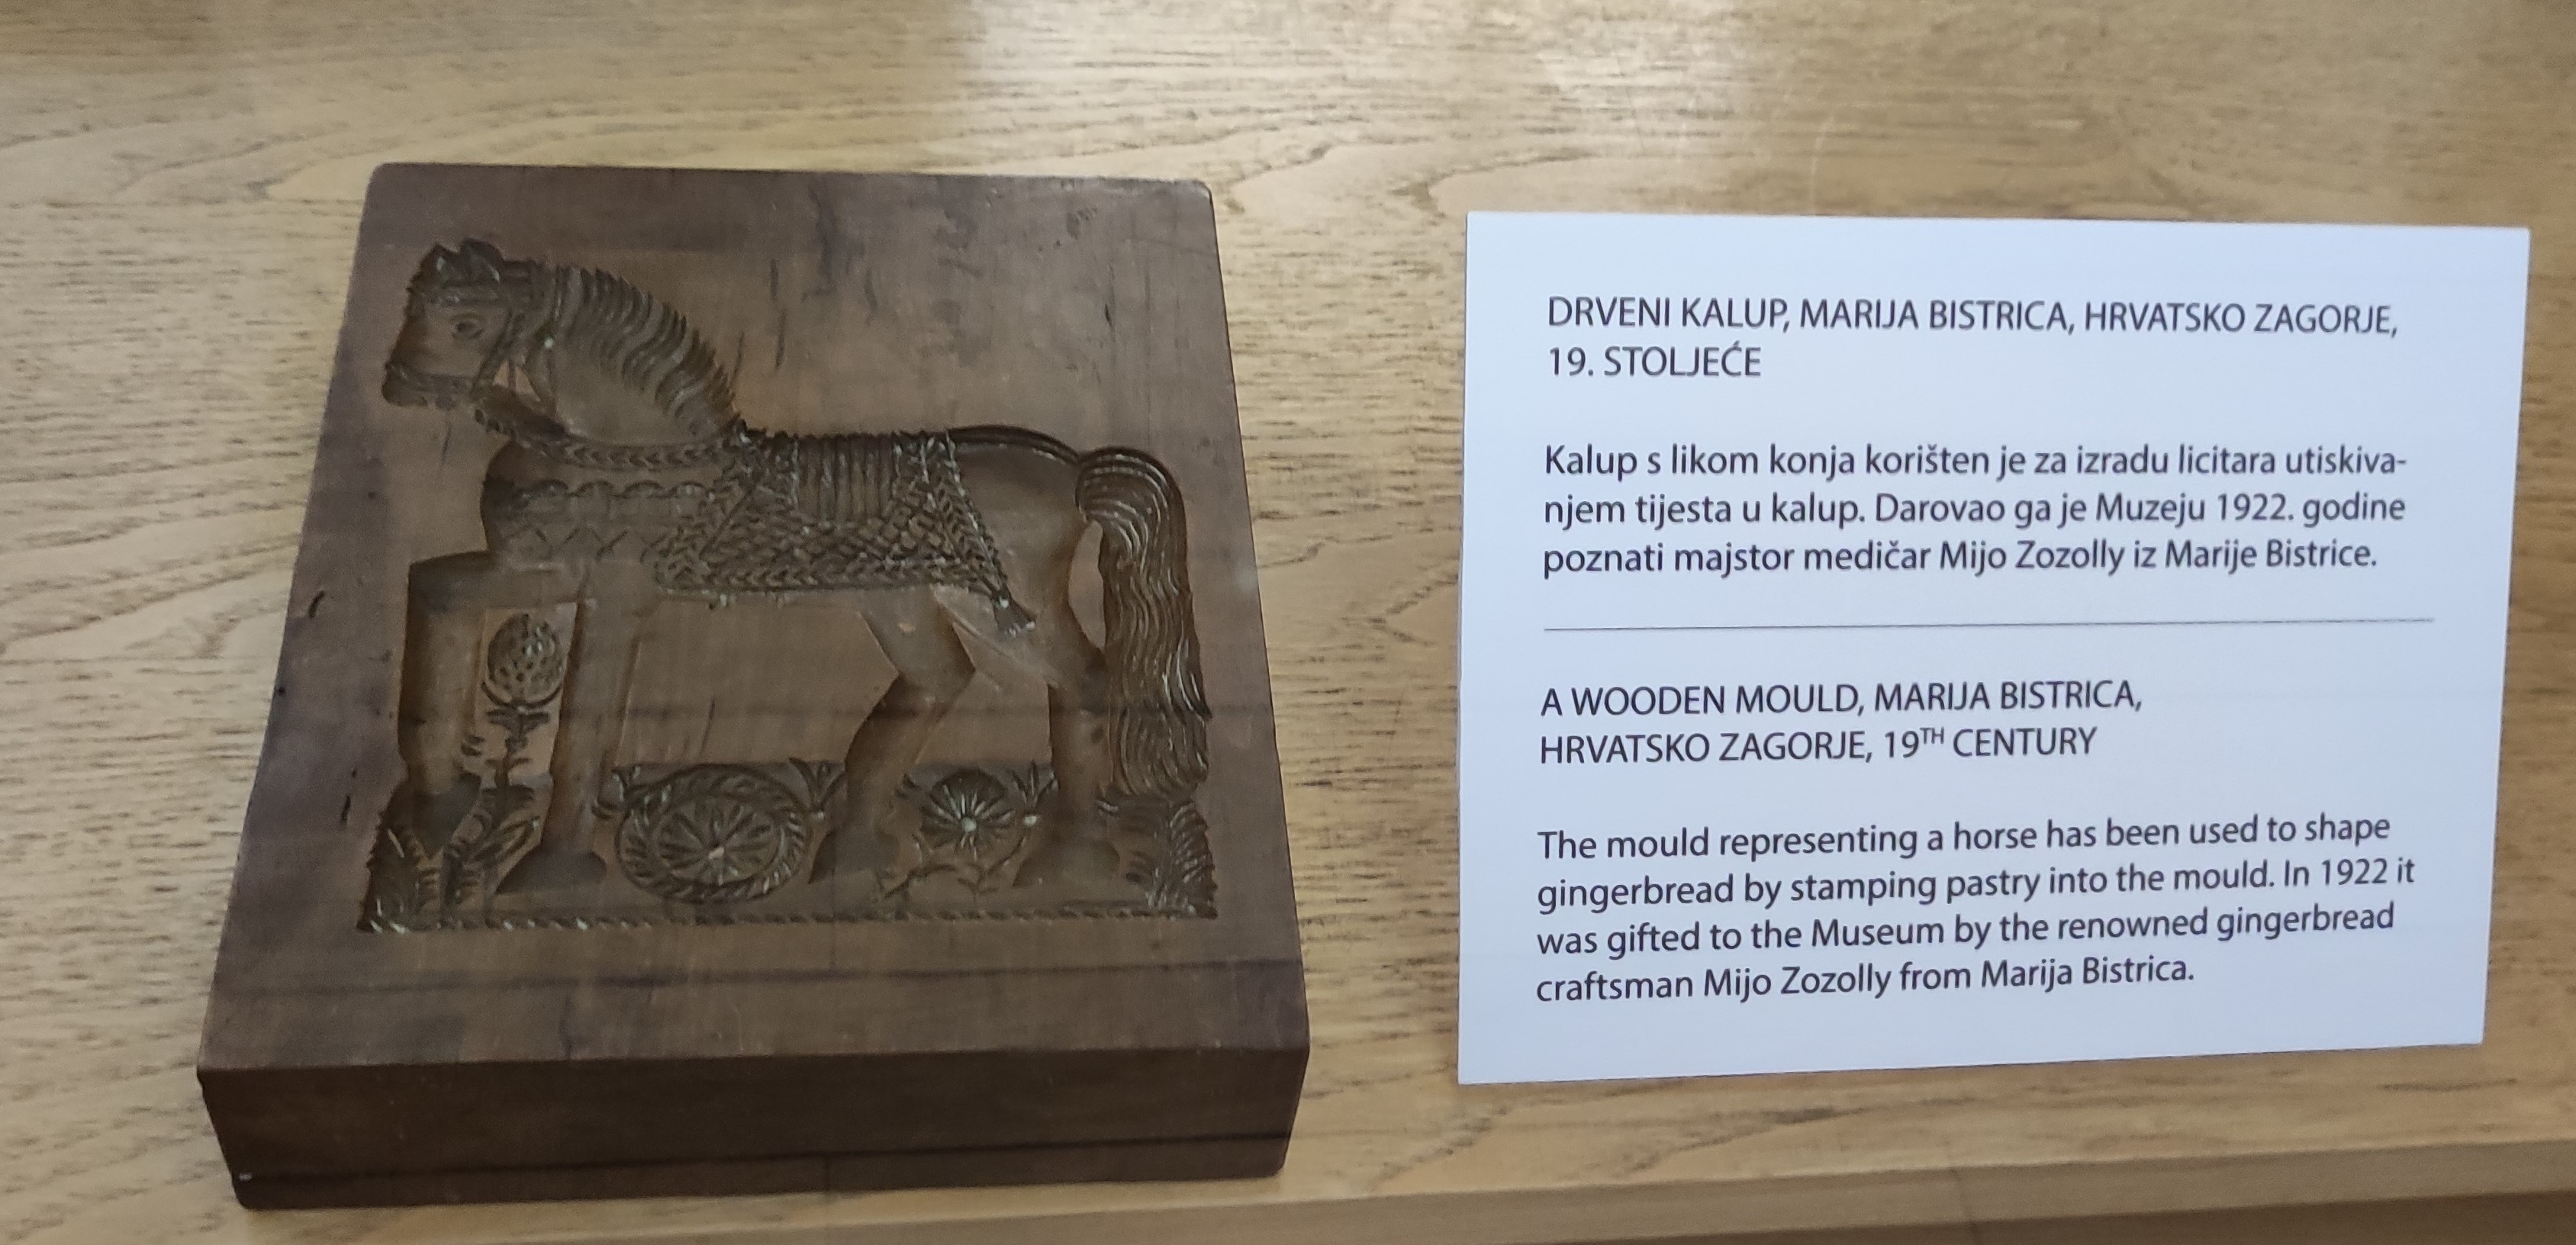 DRVENI KALUP, MARIJA BISTRICA, HRVATSKO ZAGORJE,
19. STOLJEĆE
Kalup s likom konja korišten je za izradu licitara utiskiva-
njem tijesta u kalup. Darovao ga je Muzeju 1922. godine
poznati majstor medičar Mijo Zozolly iz Marije Bistrice.
A WOODEN MOULD, MARIJA BISTRICA,
HRVATSKO ZAGORJE, 19TH CENTURY
The mould representing a horse has been used to shape
gingerbread by stamping pastry into the mould. In 1922 it
was gifted to the Museum by the renowned gingerbread
craftsman Mijo Zozolly from Marija Bistrica.